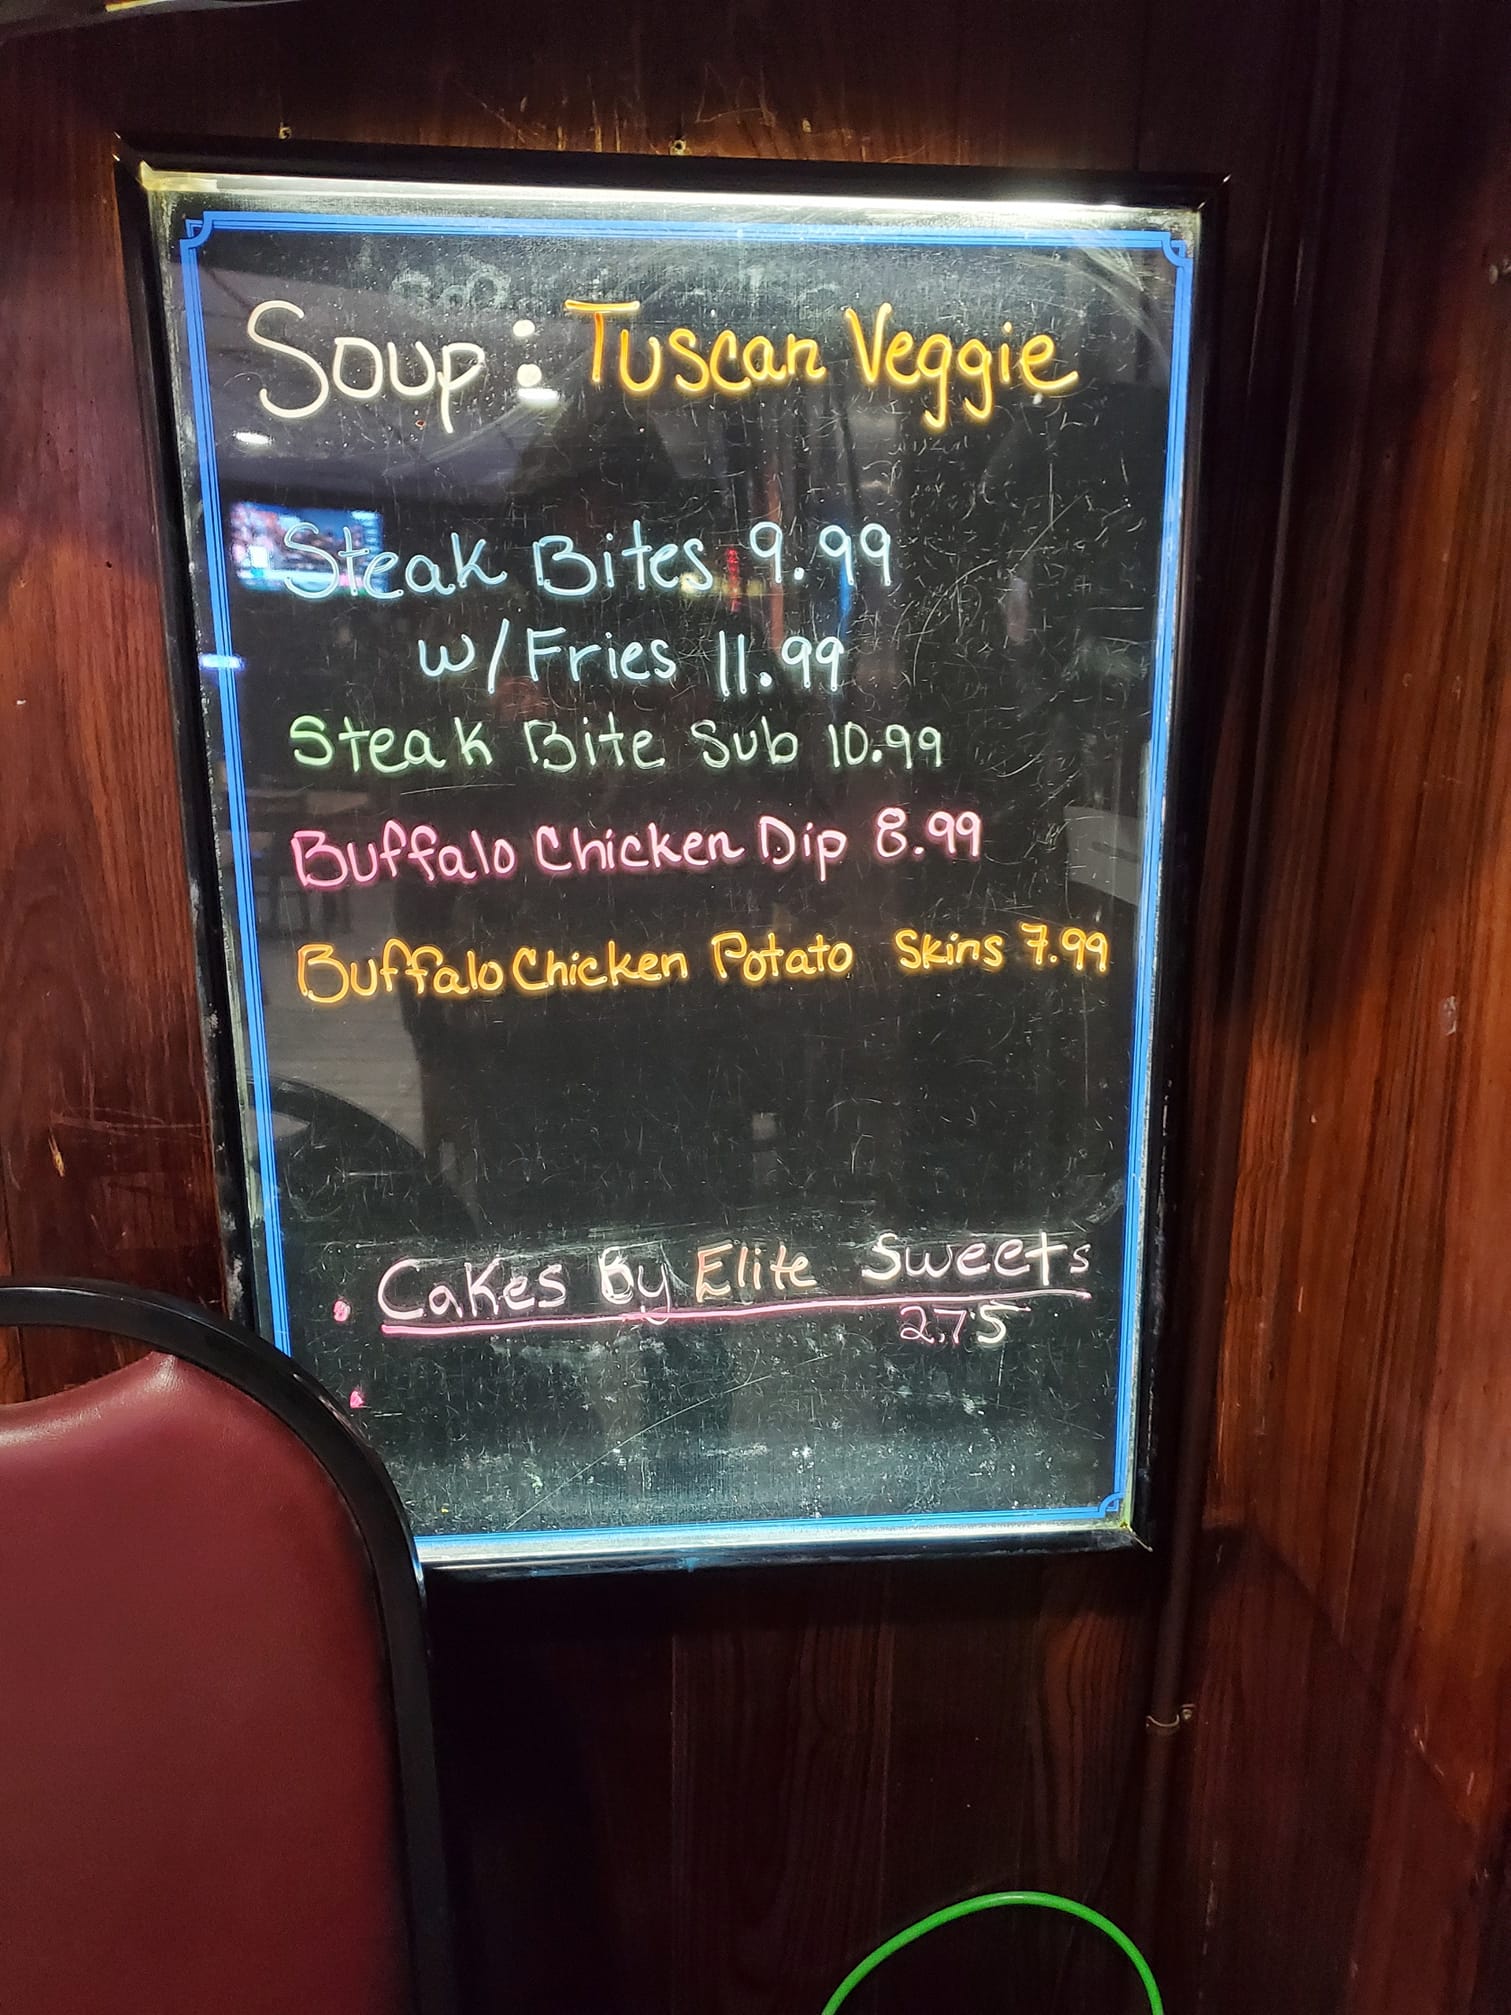 Soup: Tuscan Veggie
Steak Bites 9.99
w/Fries 11.99
Steak Bite Sub 10.99
Buffalo Chicken Dip 8.99
Buffalo Chicken Potato Skins 7.99
Cakes By Elite Sweets
2.75